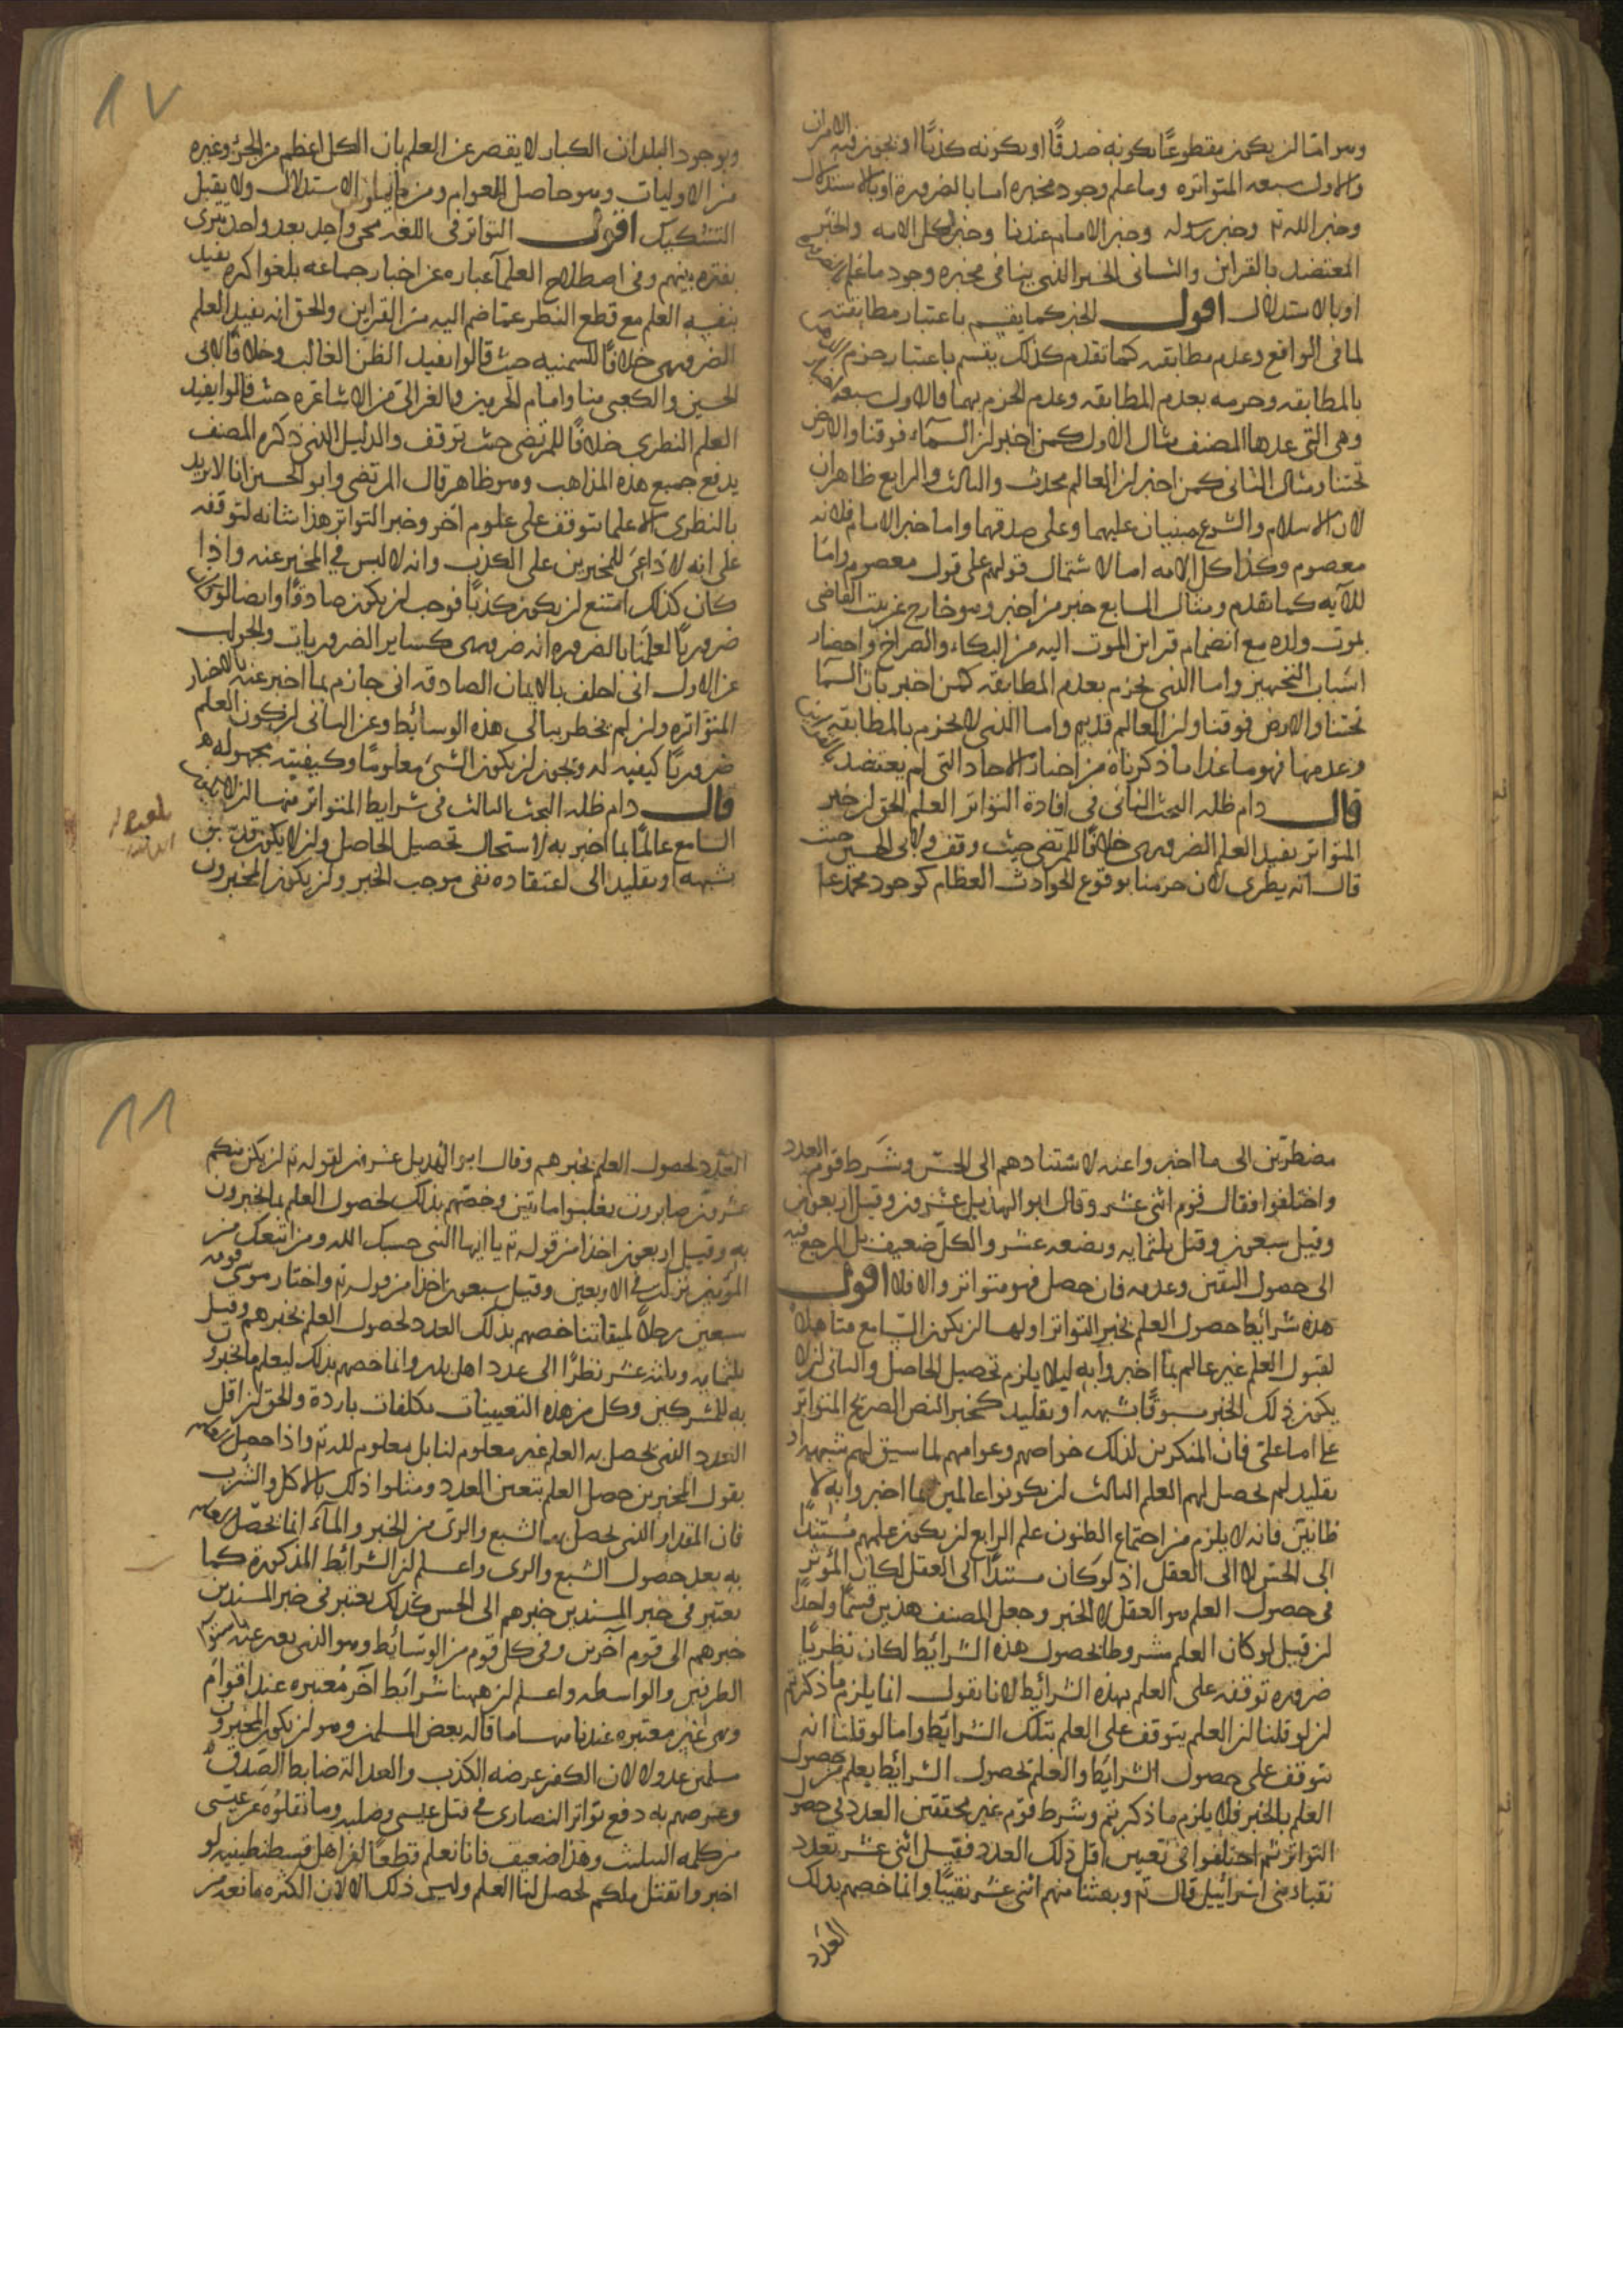 وهو اما ان يكون مقطوعًا بكونه صدقًا او بكونه كذبًا او يجوز فيه الامران
والاول سبعه المتواتره وما علم وجود مخبره اما بالضروره او بالاستدلال
وخبر الله تع وخبر رسوله وخبر الامام عندنا وخبر كل الامه والخبر
المعتضد بالقراين والثانى الخبر الذى ينافى مخبره وجود ما علم بالضروره
او بالاستدلال اقول الخبر كما يقسم باعتبار مطابقته
لما فى الواقع وعدم مطابقته كما تقدم كذلك يقسم باعتبار جزم
بالمطابقه وجزمه بعدم المطابقه وعدم الجزم بهما فالاول سبعه
وهى التى عدها المصنف مثال الاول كمن اخبر ان السماء فوقنا والارض
تحتنا ومثال الثانى كمن اخبر ان العالم محدث والثالث والرابع ظاهران
لان الاسلام والشرع مبنيان عليهما وعلى صدقهما واما خبر الامام فلانه
معصوم وكذا كل الامه اما لاشتمال قولهم على قول معصوم واما
للآيه كما تقدم ومثال السابع خبر من اخبر وهو خارج عن بيت القاضى
بموت ولده مع انضمام قراين الموت اليه من البكاء والصراخ واحضار
اسباب التجهيز واما الذى يجزم بعدم المطابقه كمن اخبر بان السما
تحتنا والارض فوقنا وان العالم قديم واما الذى لا يجزم بالمطابقه
وعدمها فهو ما عدا ما ذكرناه من اخبار الاحاد التى لم يعتضد بالقراين
قال دام ظله البحث الثانى فى افادة التواتر العلم الحق ان خبر
المتواتر يفيد العلم الضرورى خلافًا للمرتضى حيث وقف ولابى الحسين حيث
قال انه نظرى لان جزمنا بوقوع الحوادث العظام كوجود محمد عا
١٧
وبوجود البلدان الكبار لا يقصر عن العلم بان الكل اعظم من الجزء وغيره
من الاوليات وهو حاصل للعوام ومن لم يمارس الاستدلال ولا يقبل
التشكيك اقول التواتر فى اللغه مجى واحد بعد واحد تترى
بفتره بينهم وفى اصطلاح العلمآ عباره عن اخبار جماعه بلغوا كثره يفيد
بنفسه العلم مع قطع النظر عما ضم اليه من القراين والحق انه يفيد العلم
الضرورى خلافًا للسمنيه حيث قالوا يفيد الظن الغالب وخلافًا لابى
الحسين والكعبى منا وامام الحرمين والغزالى من الاشاعره حيث قالوا يفيد
العلم النظرى خلافًا للمرتضى حيث توقف والدليل الذى ذكره المصنف
يدفع جميع هذه المذاهب وهو ظاهر قال المرتضى وابو الحسين انا لا نريد
بالنظرى الا علما يتوقف على علوم اخر وخبر التواتر هذا شانه لتوقفه
على انه لا داعى للمخبرين على الكذب وانه لا لبس فى المخبر عنه واذا
كان كذلك امتنع ان يكون كذبًا فوجب ان يكون صادقًا وايضا لو كان
ضروريًا لعلمنا بالضروره انه ضرورى كساير الضروريات والجواب
عن الاول انى احلف بالايمان الصادقه انى جازم بما اخبر عنه بالاخبار
المتواتره وان لم يخطر ببالى هذه الوسائط وعن الثانى ان كون العلم
ضروريًا كيفيه له ويجوز ان يكون الشئ معلومًا وكيفيته مجهوله
قال دام ظله البحث الثالث فى شرايط المتواتر منها ان لا يكون
السامع عالمًا بما اخبر به لاستحاله تحصيل الحاصل وان لا يكون قد سبق
بشبهه او تقليد الى اعتقاده نفى موجب الخبر وان يكون المخبرون
مضطرين الى ما اخبروا عنه لاستنادهم الى الحس وشرط قوم العدد
واختلفوا فقال قوم اثنى عشر وقال ابو الهذيل عشرون وقيل اربعون
وقيل سبعون وقيل ثلثمايه وبضعه عشر والكل ضعيف بل المرجع فيه
الى حصول اليقين وعدمه فان حصل فهو متواتر والا فلا اقول
هذه شرائط حصول العلم بخبر التواتر اولها ان يكون السامع متاهلا
لقبول العلم غير عالم بما اخبروا به ليلا يلزم تحصيل الحاصل والثانى ان لا
يكون ذلك الخبر مسبوقًا بشبهه او تقليد كخبر النص الصريح المتواتر
على امامة على فان المنكرين لذلك خواصهم وعوامهم لما سبق لهم شبهه او
تقليد لم يحصل لهم العلم الثالث ان يكونوا عالمين بما اخبروا به لا
ظانين فانه لا يلزم من اجتماع الظنون علم الرابع ان يكون علمهم مستندًا
الى الحس لا الى العقل اذ لو كان مستندًا الى العقل لكان المؤثر
فى حصول العلم هو العقل لا الخبر وجعل المصنف هذين قسمًا واحدًا
ان قيل لو كان العلم مشروطا بحصول هذه الشرائط لكان نظريًا
ضروره توقفه على العلم بهذه الشرائط لانا نقول انما يلزم ما ذكرتم
ان لو قلنا ان العلم يتوقف على العلم بتلك الشرايط واما لو قلنا انه
يتوقف على حصول الشرايط والعلم بحصول الشرائط يعلم من حصول
العلم بالخبر فلا يلزم ما ذكرتم وشرط قوم غير محققين العدد فى حصول
التواتر ثم اختلفوا فى تعيين اقل ذلك العدد فقيل اثنى عشر بعدد
نقباء بنى اسرائيل قال تع وبعثنا منهم اثنى عشر نقيبًا وانما خصهم بذلك
العدد
١٨
العدد لحصول العلم بخبرهم وقال ابو الهذيل عشرون لقوله تع ان يكن منكم
عشرون صابرون يغلبوا مائتين وخصهم بذلك لحصول العلم بما يخبرون
به وقيل اربعون اخذا من قوله تع يا ايها النبى حسبك الله ومن اتبعك من
المؤمنين نزلت فى الاربعين وقيل سبعون اخذا من قوله تع واختار موسى قومه
سبعين رجلًا لميقاتنا خصهم بذلك العدد لحصول العلم بخبرهم وقيل
ثلثمايه وثلثه عشر نظرًا الى عدد اهل بدر وانما خصهم بذلك ليعلم ما يخبرون
به للمشركين وكل من هذه التعيينات تكلفات باردة والحق ان اقل
العدد الذى يحصل به العلم غير معلوم لنا بل معلوم لله تع واذا حصل
بقول المخبرين حصل العلم بتعين العدد ومثلوا ذلك بالاكل والشرب
فان المقدار الذى يحصل به الشبع والرى من الخبز والمآء انما يحصل
به بعد حصول الشبع والرى واعلم ان الشرائط المذكورة كما
يعتبر فى خبر المسندين خبرهم الى الحس كذلك يعتبر فى خبر المسندين
خبرهم الى قوم آخرين وفى كل قوم من الوسائط وهو الذى يعبر عنه
الطرفين والواسطه واعلم ان ههنا شرائط آخر معتبره عند اقوام
وهى غير معتبره عندنا منها ما قاله بعض المسلمين وهو ان يكون المخبرون
مسلمين عدولا لان الكفر عرضه الكذب والعدالة ضابط الصدق
وغرضهم به دفع تواتر النصارى فى قتل عيسى وصلبه وما نقلوه عن عيسى
من كلمه التثليث وهذا ضعيف فانا نعلم قطعًا ان اهل قسطنطينيه لو
اخبروا بقتل ملكهم لحصل لنا العلم وليس ذلك الا لان الكثره مانعه من